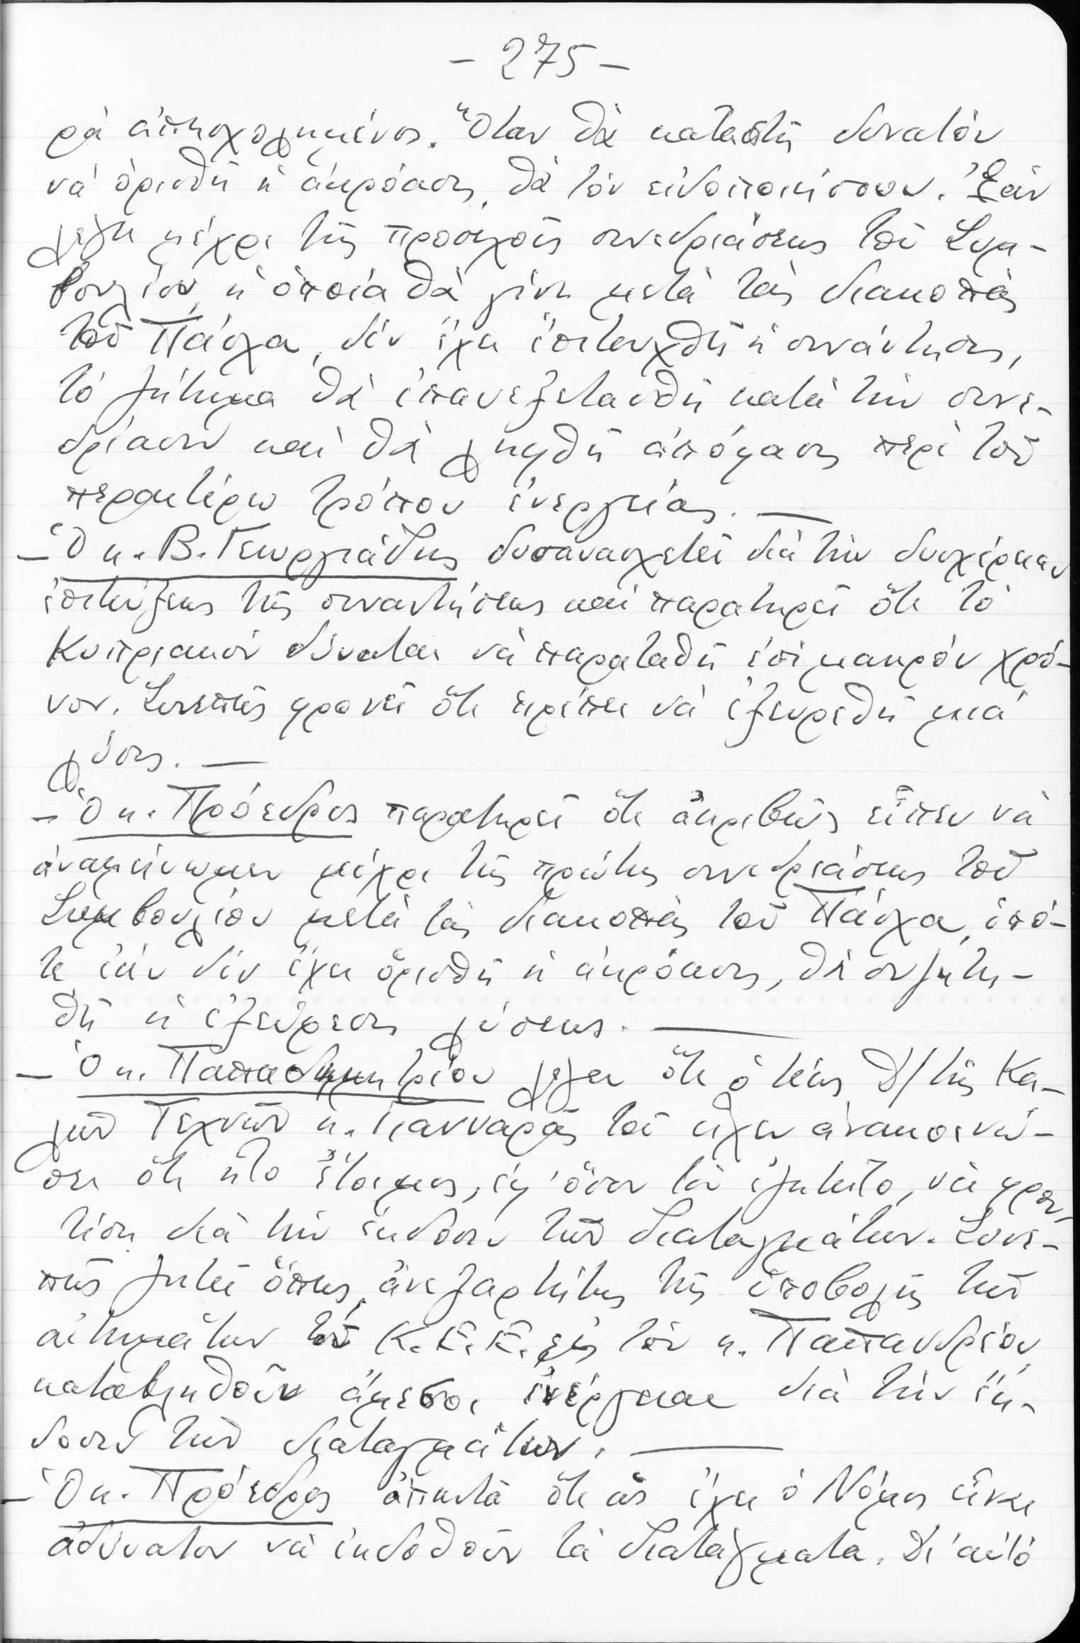 - 275 -
ρά ἀπησχολημένος. Ὅταν θά καταστῇ δυνατόν
νά ὁρισθῇ ἡ ἀκρόασις, θά τόν εἰδοποιήσουν. Ἐάν
λέγει μέχρι τῆς προσεχοῦς συνεδριάσεως τοῦ Συμ-
βουλίου, ἡ ὁποία θά γίνῃ μετά τάς διακοπάς
τοῦ Πάσχα, δέν ἔχει ἐπιτευχθῆ ἡ συνάντησις,
τό ζήτημα θά ἐπανεξετασθῇ κατά τήν συνε-
δρίασιν καί θά ληφθῇ ἀπόφασις περί τοῦ
περαιτέρω τρόπου ἐνεργείας. —
- Ὁ κ. Β. Γεωργιάδης δυσανασχετεῖ διά τήν δυσχέρειαν
ἐπιτεύξεως τῆς συναντήσεως καί παρατηρεῖ ὅτι τό
Κυπριακόν δύναται νά παραταθῇ ἐπί μακρόν χρό-
νον. Συνεπῶς φρονεῖ ὅτι πρέπει νά ἐξευρεθῇ μιά
λύσις. —
- Ὁ κ. Πρόεδρος παρατηρεῖ ὅτι ἀκριβῶς εἶπεν νά
ἀναμείνωμεν μέχρι τῆς πρώτης συνεδριάσεως τοῦ
Συμβουλίου μετά τάς διακοπάς τοῦ Πάσχα, ὁπό-
τε ἐάν δέν ἔχει ὁρισθῆ ἡ ἀκρόασις, θά συζητη-
θῇ ἡ ἐξεύρεσις λύσεως. —
- Ὁ κ. Παπαδημητρίου λέγει ὅτι ὁ τέως Δ/τής Κα-
λῶν Τεχνῶν κ. Γιανναρᾶς τοῦ εἶχεν ἀνακοινώ-
σει ὅτι ἦτο ἕτοιμος, ἐφ' ὅσον τοῦ ἐζητεῖτο, νά φρον-
τίσῃ διά τήν ἔκδοσιν τῶν Διαταγμάτων. Συνε-
πῶς ζητεῖ ὅπως, ἀνεξαρτήτως τῆς ὑποβολῆς τῶν
αἰτημάτων τοῦ Κ.Ε.Ε. εἰς τόν κ. Παπανδρέου,
καταβληθοῦν ἄμεσοι ἐνέργειαι διά τήν ἔκ-
δοσιν τῶν διαταγμάτων. —
- Ὁ κ. Πρόεδρος ἀπαντᾶ ὅτι ὡς ἔχει ὁ Νόμος εἶναι
ἀδύνατον νά ἐκδοθοῦν τά Διατάγματα. Δι' αὐτό